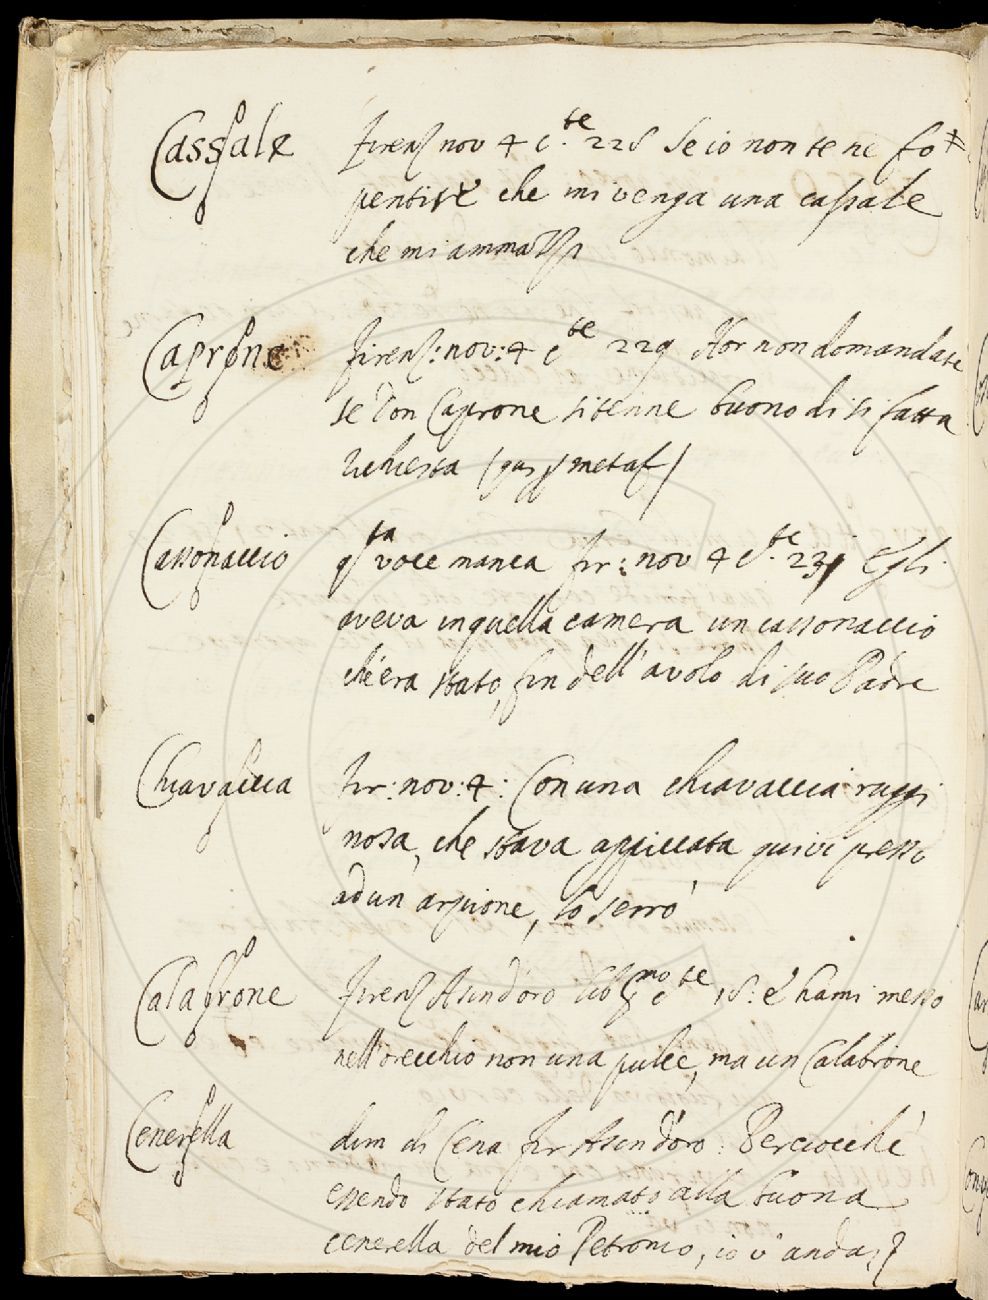 Cassale Firenz nov 4 c.te 228 Se io non te ne fo
pentire che mi venga una cassale
che mi ammazzi
Caprone Firenz: nov: 4 c te 229 Hor non domandate
se Don Caprone si tenne buono di si fatta
richiesta (qui metaf)
Cassonaccio qsta voce manca fir: nov 4 c.te 231 Egli
aveva in quella camera un cassonaccio
ch'era stato, fin dell'avolo di suo Padre
Chiavaccia fir: nov: 4: Con una chiavaccia ruggi
nosa, che stava appiccata quivi presso
ad un arpione, lo serrò
Calabrone Firenz Asin d'oro c te 18: è hami messo
nell'orecchio non una pulce, ma un Calabrone
Cenerella dim di Cena fir Asin d'oro: Perciocché
essendo stato chiamato alla buona
cenerella del mio Petronio, io v'anda: